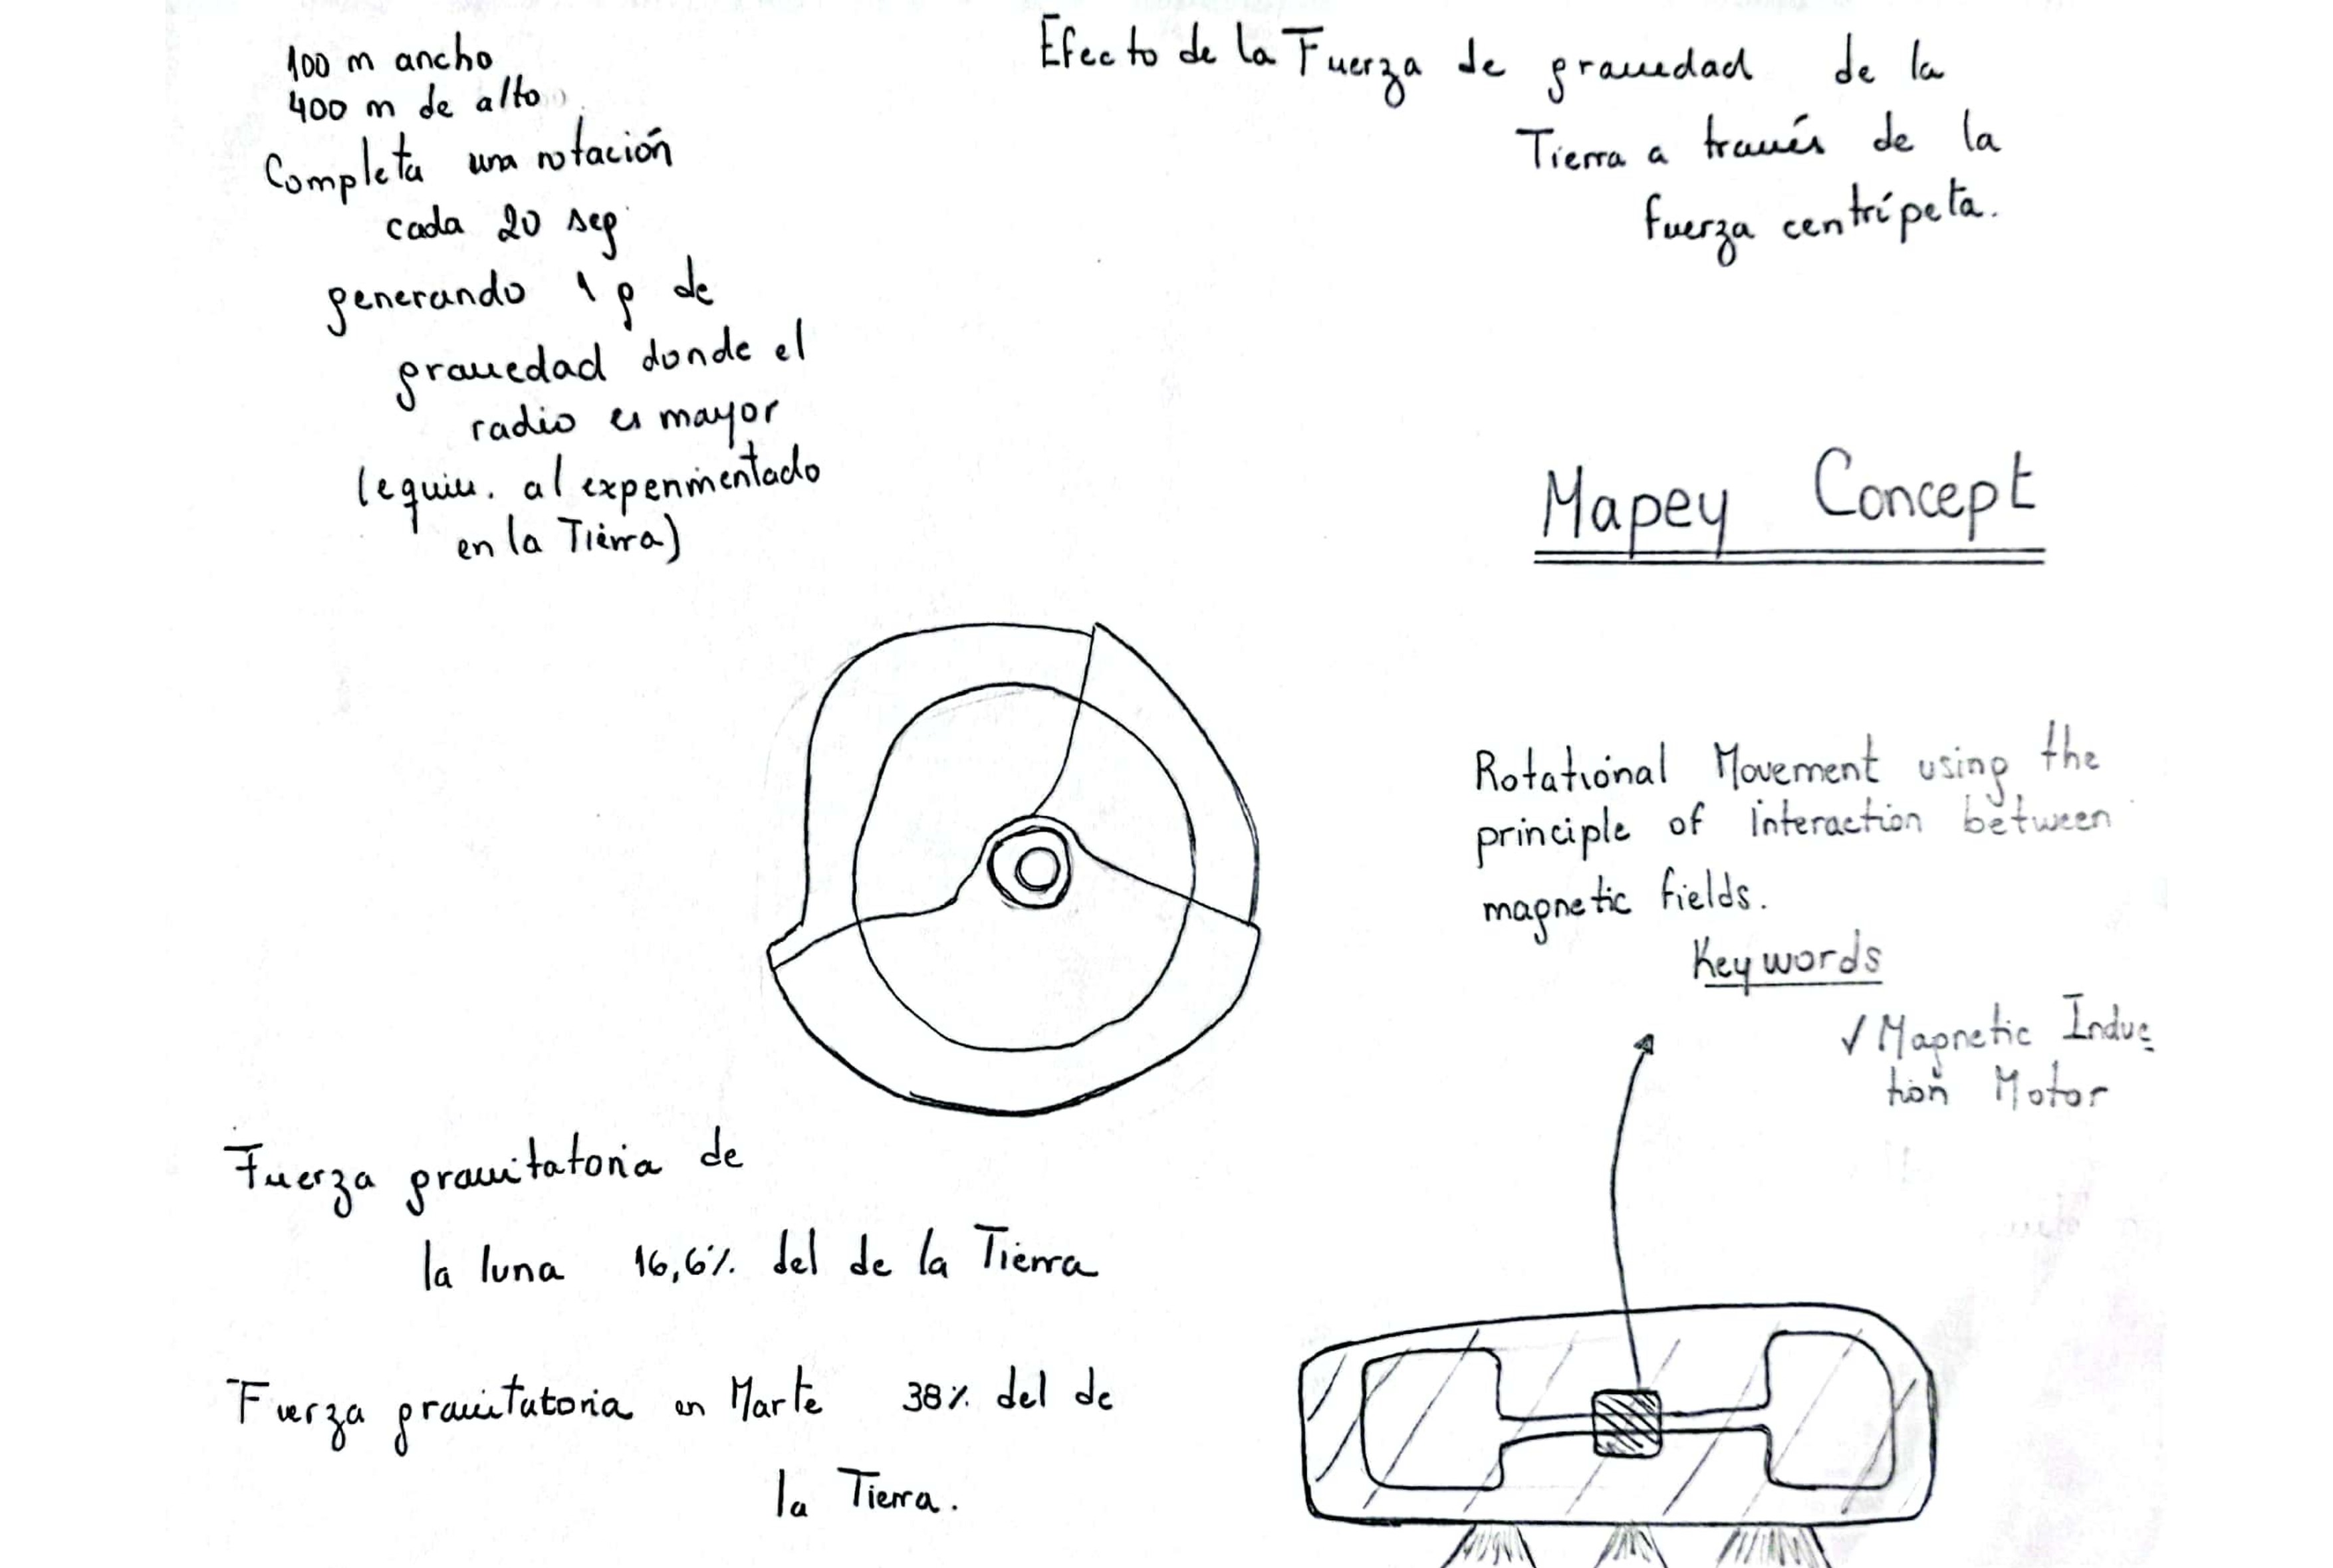 100 m ancho
400 m de alto
Completa una rotación
cada 20 seg
generando 1 g de
gravedad donde el
radio es mayor
(equiv. al experimentado
en la Tierra)
Efecto de la Fuerza de gravedad de la
Tierra a través de la
fuerza centrípeta.
Mapey Concept
Rotational Movement using the
principle of interaction between
magnetic fields.
Keywords
✓ Magnetic Induc
tion Motor
Fuerza gravitatoria de
la luna 16,6% del de la Tierra
Fuerza gravitatoria en Marte 38% del de
la Tierra.